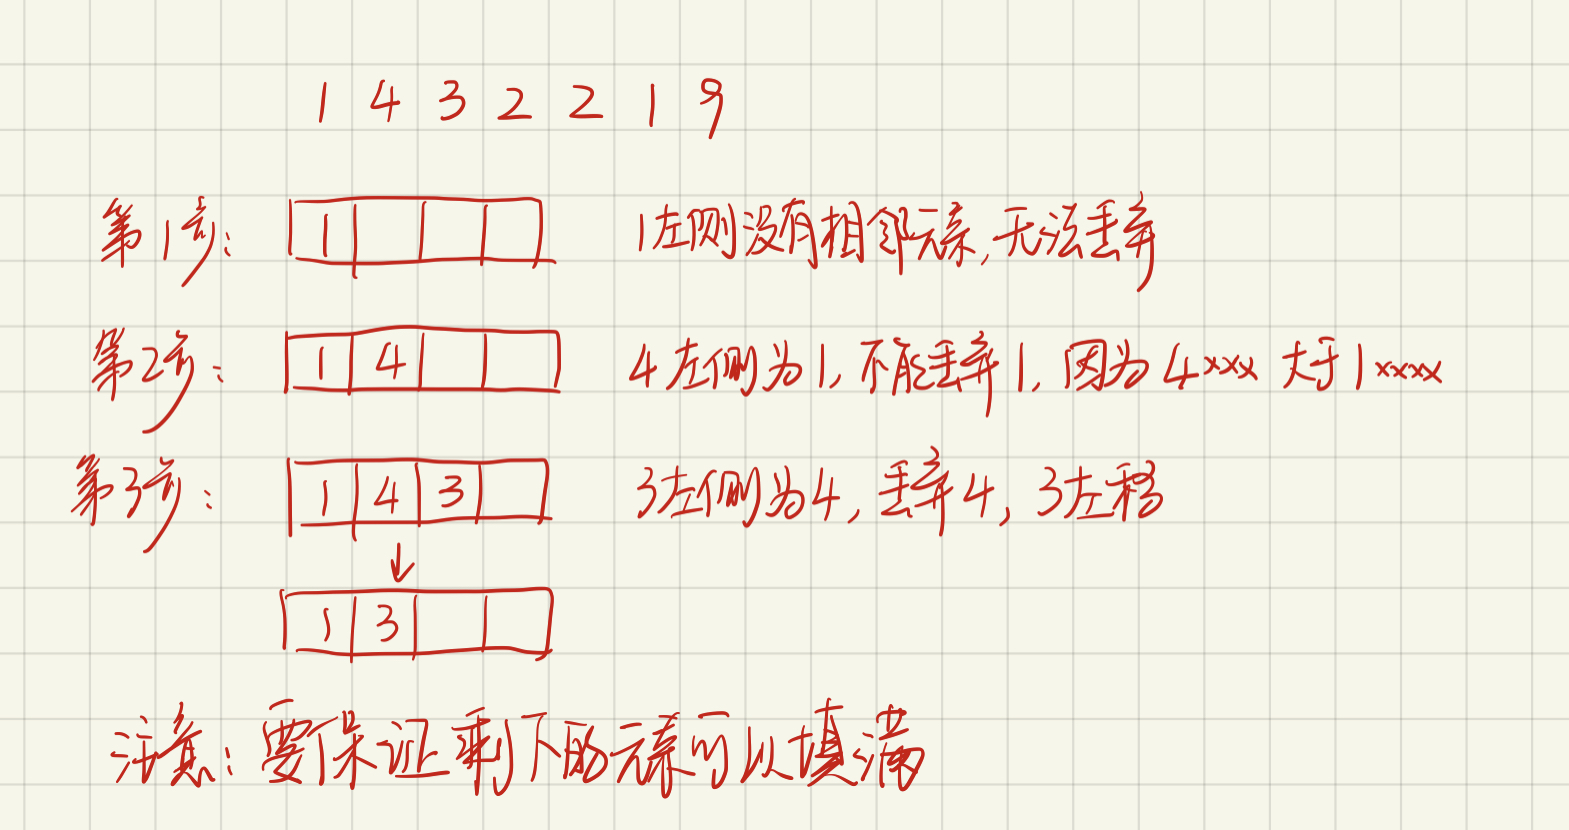 1 4 3 2 2 1 9
第1步: 1 1左侧没有相邻元素,无法丢弃
第2步: 1 4 4左侧为1,不能丢弃1,因为4xxx 大于1xxxx
第3步: 1 4 3 3左侧为4,丢弃4,3左移
↓
1 3
注意:要保证剩下的元素可以填满